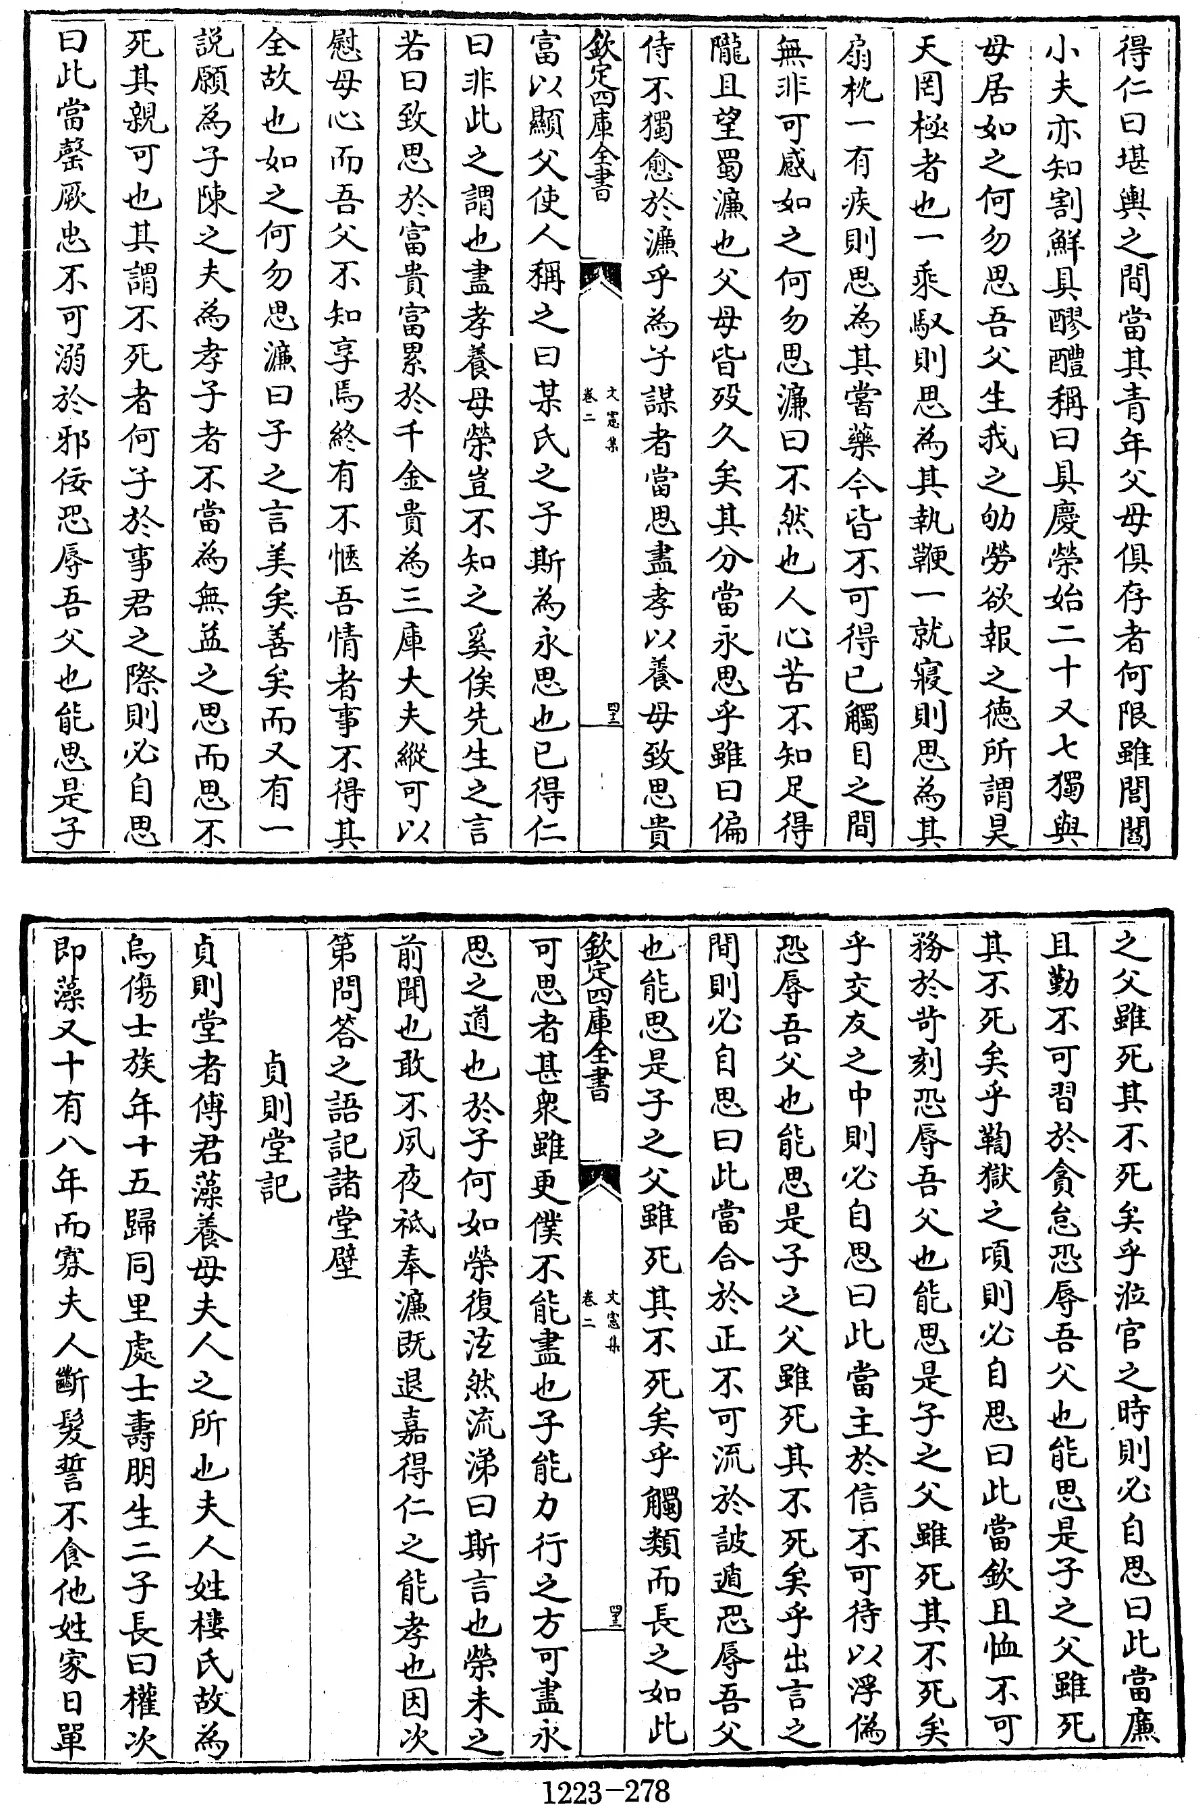 得仁曰堪輿之間當其青年父母俱存者何限雖閭閻
小夫亦知割鮮具醪醴稱曰具慶榮始二十又七獨與
母居如之何勿思吾父生我之劬勞欲報之徳所謂昊
天罔極者也一乘馭則思為其執鞭一就寢則思為其
扇枕一有疾則思為其嘗藥今皆不可得已觸目之間
無非可感如之何勿思濂曰不然也人心苦不知足得
隴且望蜀濂也父母皆殁久矣其分當永思乎雖曰偏
侍不獨愈於濂乎為子謀者當思盡孝以養母致思貴
欽定四庫全書
文憲集
卷二
四十三
富以顯父使人稱之曰某氏之子斯為永思也已得仁
曰非此之謂也盡孝養母榮豈不知之奚俟先生之言
若曰致思於富貴富累於千金貴為三庫大夫縱可以
慰母心而吾父不知享焉終有不愜吾情者事不得其
全故也如之何勿思濂曰子之言美矣善矣而又有一
説願為子陳之夫為孝子者不當為無益之思而思不
死其親可也其謂不死者何子於事君之際則必自思
曰此當罄厥忠不可溺於邪佞恐辱吾父也能思是子
之父雖死其不死矣乎涖官之時則必自思曰此當㢘
且勤不可習於貪怠恐辱吾父也能思是子之父雖死
其不死矣乎鞫獄之頃則必自思曰此當欽且恤不可
務於苛刻恐辱吾父也能思是子之父雖死其不死矣
乎交友之中則必自思曰此當主於信不可待以浮偽
恐辱吾父也能思是子之父雖死其不死矣乎出言之
間則必自思曰此當合於正不可流於詖遁恐辱吾父
也能思是子之父雖死其不死矣乎觸類而長之如此
欽定四庫全書
文憲集
卷二
可思者甚衆雖更僕不能盡也子能力行之方可盡永
思之道也於子何如榮復泫然流涕曰斯言也榮未之
前聞也敢不夙夜祗奉濂既退嘉得仁之能孝也因次
第問答之語記諸堂壁
貞則堂記
貞則堂者傅君藻養母夫人之所也夫人姓樓氏故為
烏傷士族年十五歸同里處士壽朋生二子長曰權次
即藻又十有八年而寡夫人斷髮誓不食他姓家日單
1223-278